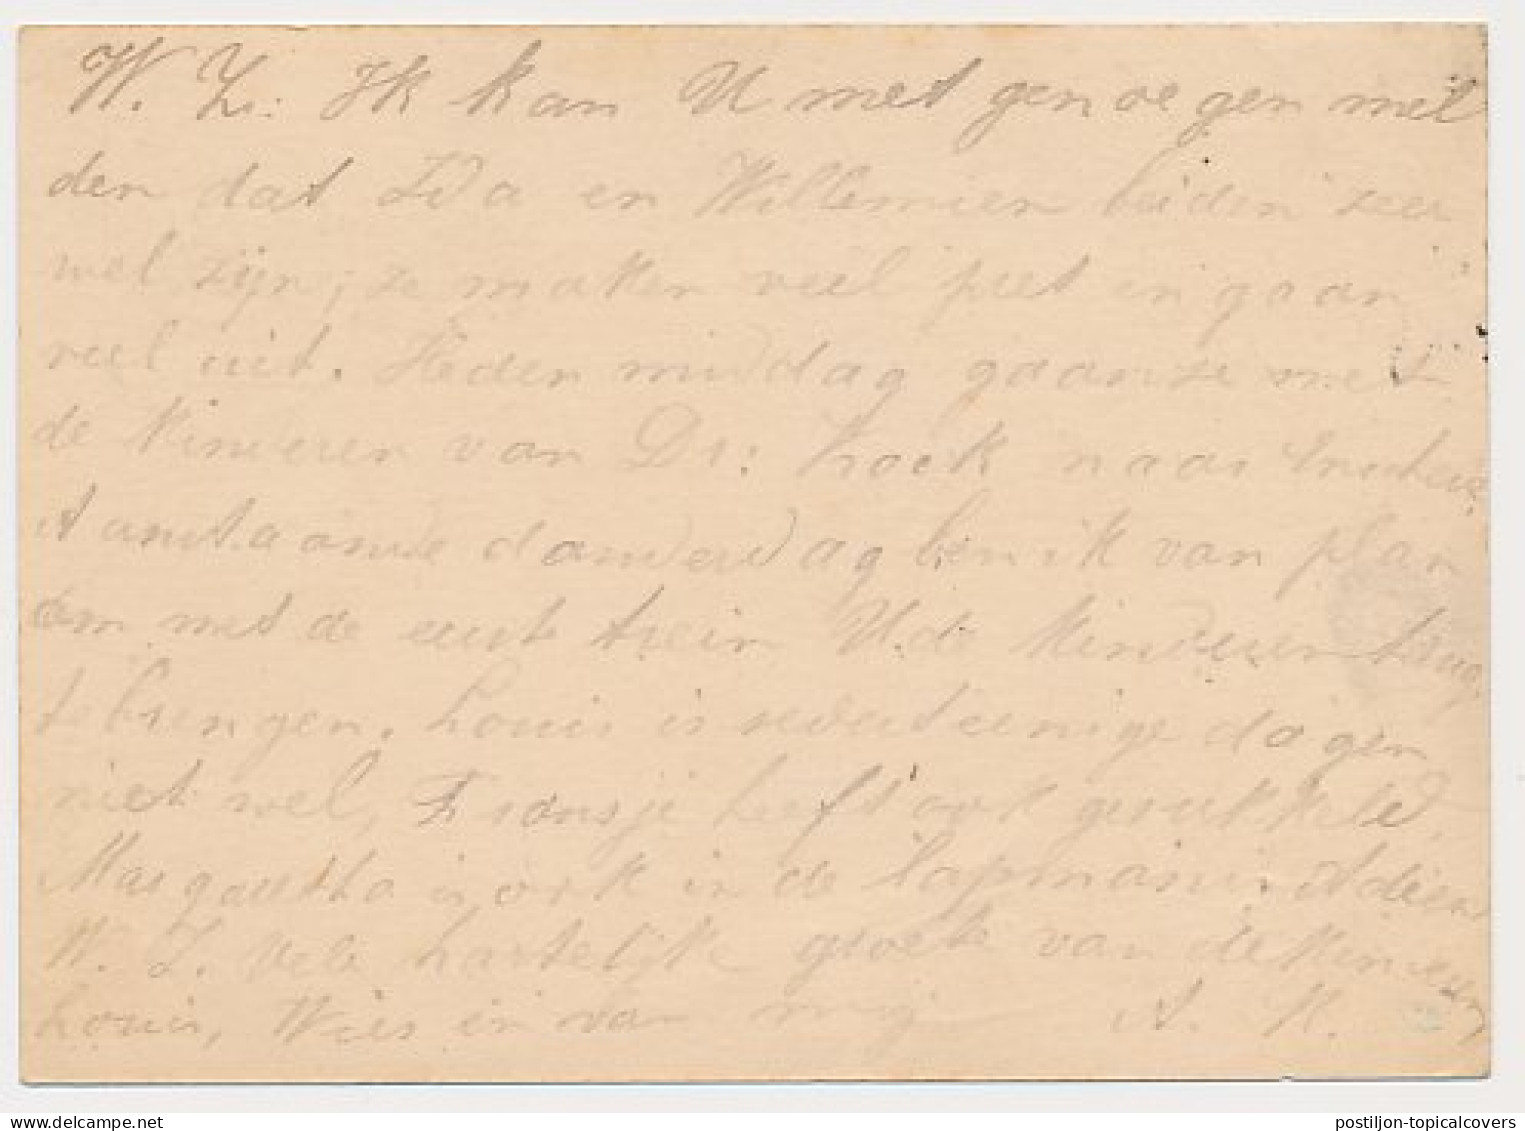 W. Z.: Ik kan U met genoegen mel
den dat Ida en Willemien beiden zeer
wel zijn; ze maken veel pret en gaan
veel uit. Heden middag gaan ze met
de kinderen van Dr: Kock naar Enschede.
Aanstaande donderdag ben ik van plan
om met de eerste trein U de kinderen terug
te brengen. Louis is sedert eenige dagen
niet wel, Fransje heeft ook gesukkeld,
Margaretha is ook in de lapmand. Adieu
W. Z. Vele hartelijke groete van de kinderen
Louis, Wies en van mij A. H.
delcampe.net
postiljon-topicalcovers